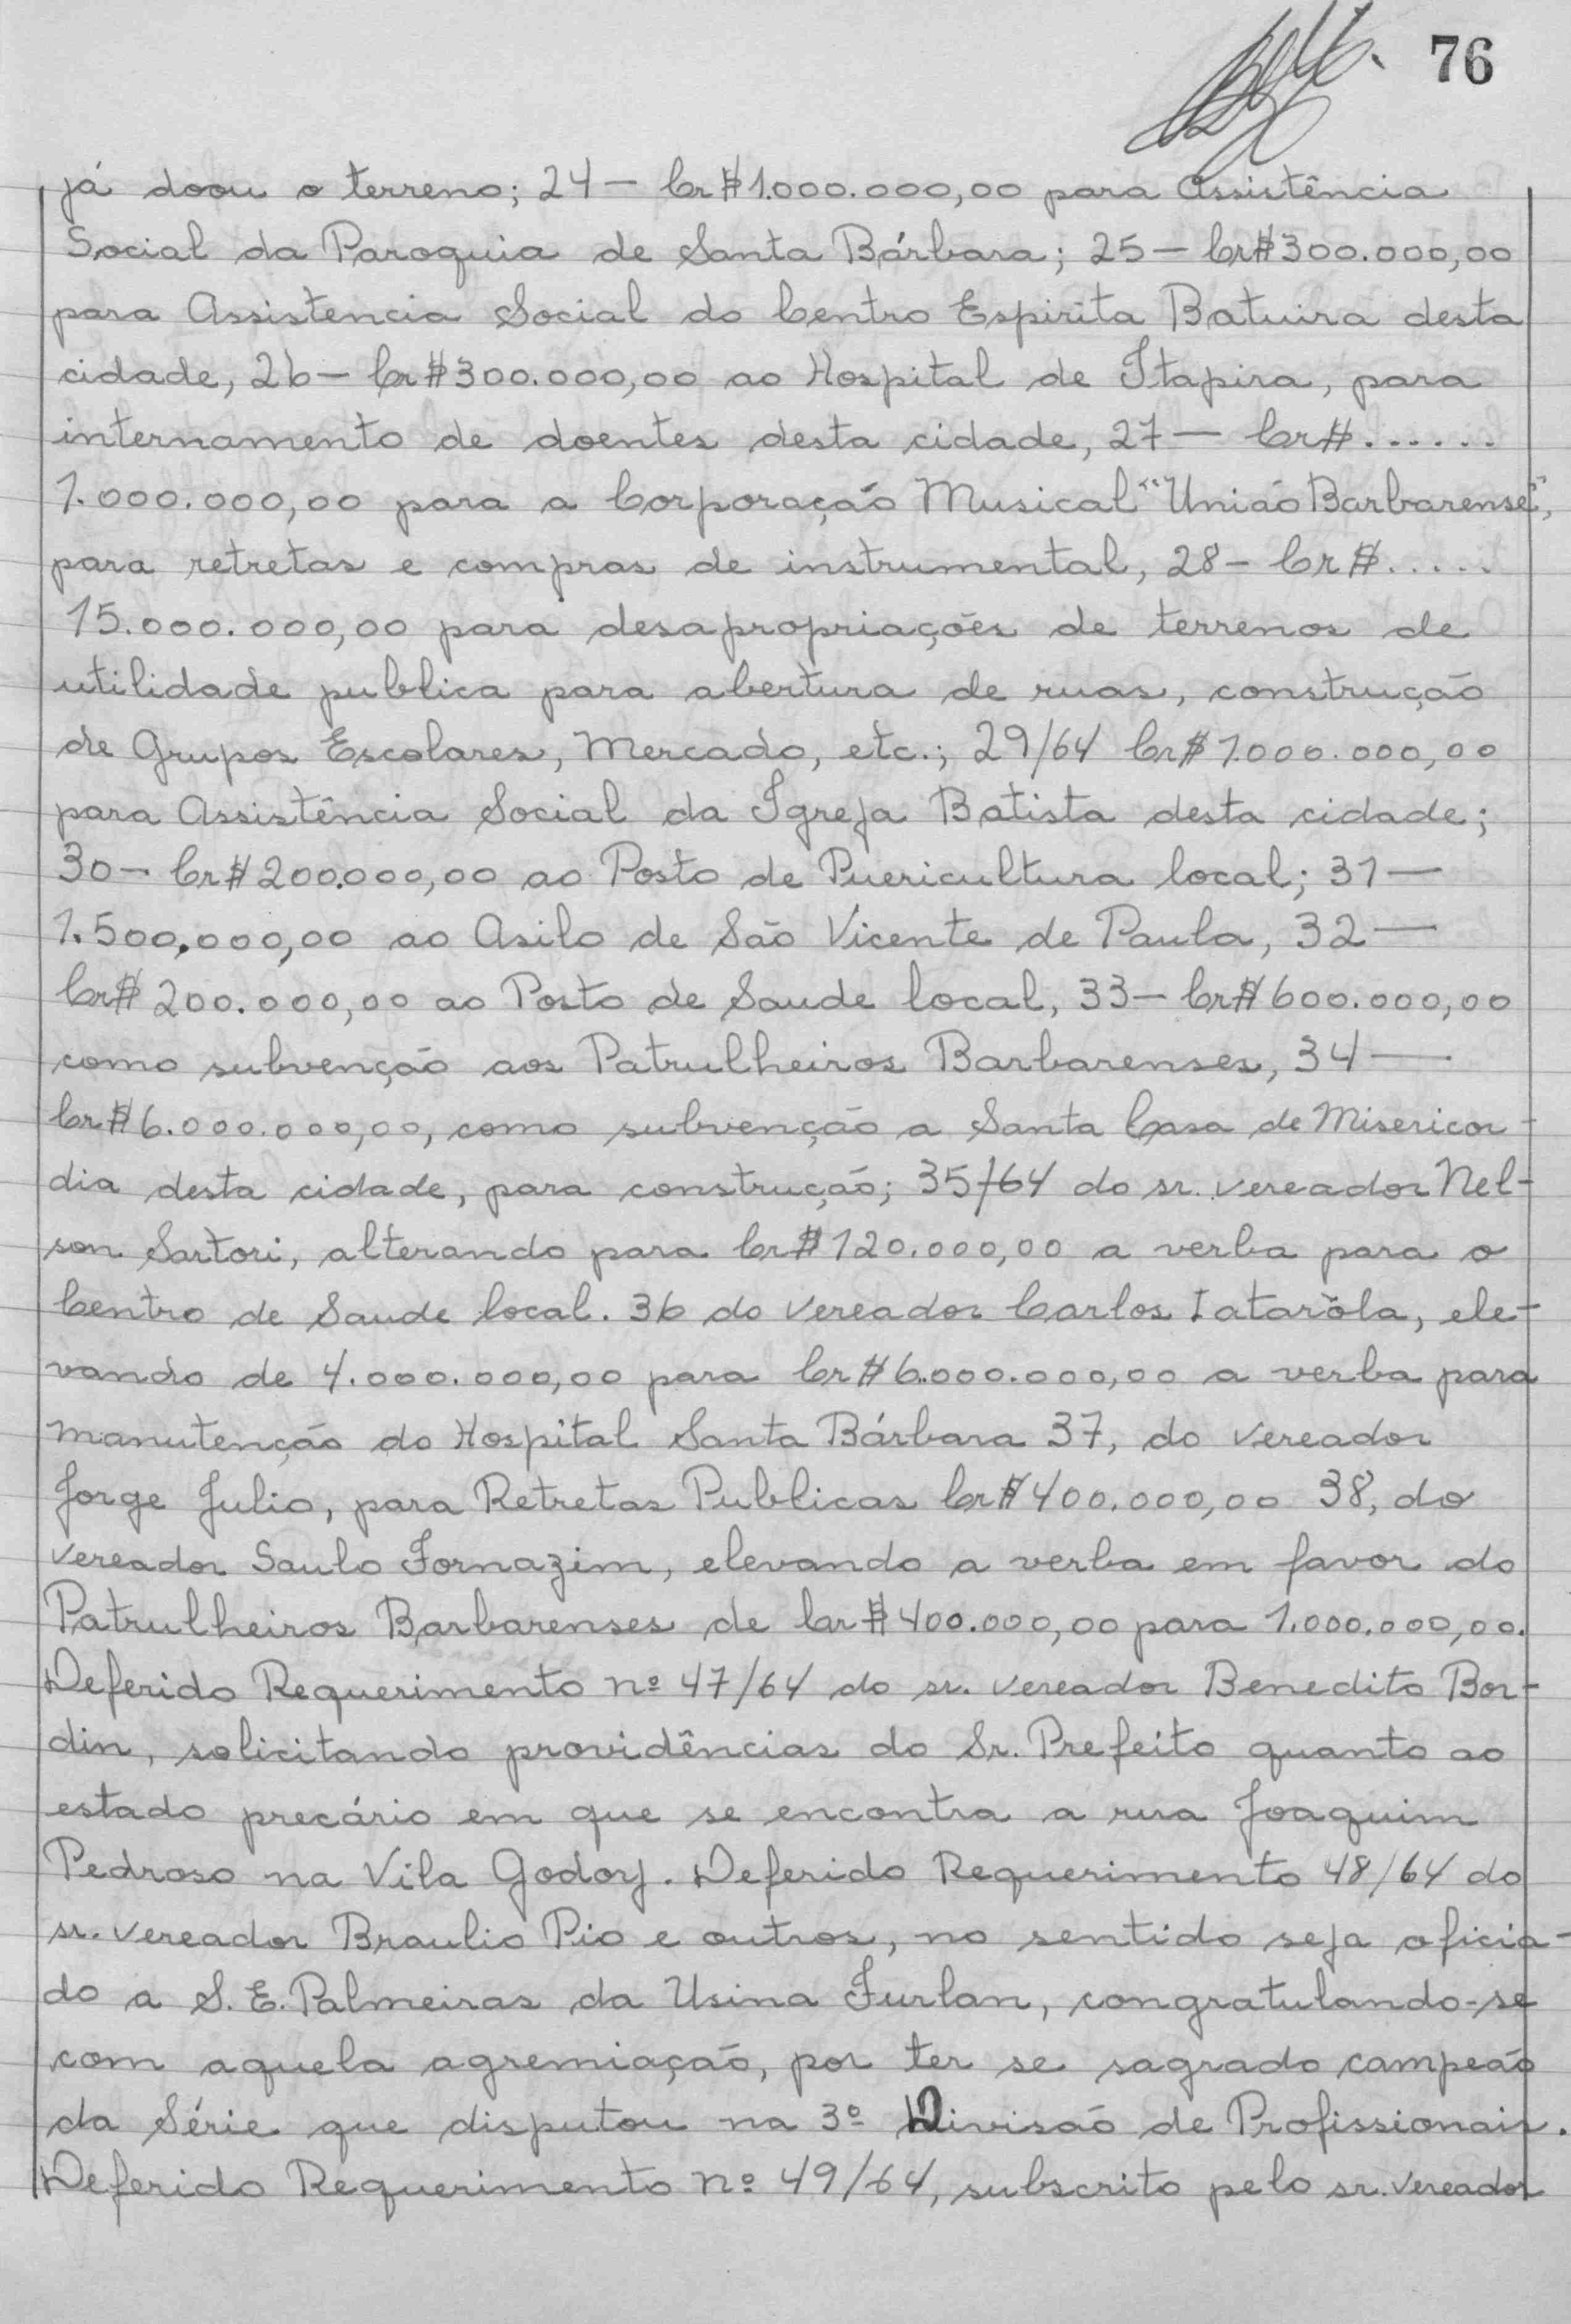 76
já doou o terreno; 24 — Cr$1.000.000,00 para Assistência
Social da Paroquia de Santa Bárbara; 25 — Cr$300.000,00
para Assistencia Social do Centro Espirita Batuira desta
cidade, 26 — Cr$300.000,00 ao Hospital de Itapira, para
internamento de doentes desta cidade, 27 — Cr$......
1.000.000,00 para a Corporação Musical "União Barbarense",
para retretas e compras de instrumental, 28 - Cr$.....
15.000.000,00 para desapropriações de terrenos de
utilidade publica para abertura de ruas, construção
de Grupos Escolares, Mercado, etc.; 29/64 Cr$1.000.000,00
para Assistência Social da Igreja Batista desta cidade;
30 - Cr$200.000,00 ao Posto de Puericultura local; 31 —
1.500.000,00 ao Asilo de São Vicente de Paula, 32 —
Cr$200.000,00 ao Posto de Saude local, 33 — Cr$600.000,00
como subvenção aos Patrulheiros Barbarenses, 34 —
Cr$6.000.000,00, como subvenção a Santa Casa de Misericor-
dia desta cidade, para construção; 35/64 do sr. vereador Nel-
son Sartori, alterando para Cr$120.000,00 a verba para o
Centro de Saude local. 36 do vereador Carlos Iataròla, ele-
vando de 4.000.000,00 para Cr$6.000.000,00 a verba para
manutenção do Hospital Santa Bárbara 37, do vereador
Jorge Julio, para Retretas Publicas Cr$400.000,00 38, do
vereador Saulo Fornazim, elevando a verba em favor do
Patrulheiros Barbarenses de Cr$400.000,00 para 1.000.000,00.
Deferido Requerimento nº 47/64 do sr. vereador Benedito Bor-
din, solicitando providências do Sr. Prefeito quanto ao
estado precário em que se encontra a rua Joaquim
Pedroso na Vila Godoy. Deferido Requerimento 48/64 do
sr. vereador Braulio Pio e outros, no sentido seja oficia-
do a S. E. Palmeiras da Usina Furlan, congratulando-se
com aquela agremiação, por ter se sagrado campeão
da Série que disputou na 3º Divisão de Profissionais.
Deferido Requerimento nº 49/64, subscrito pelo sr. vereador